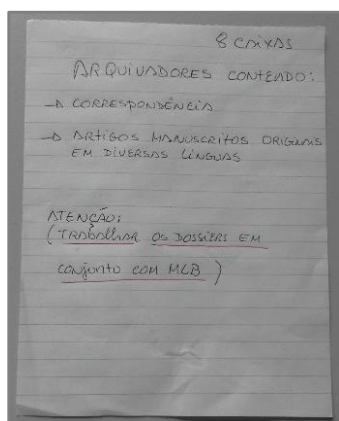 8 CAIXAS
ARQUIVADORES CONTENDO:
→ CORRESPONDÊNCIA
→ ARTIGOS MANUSCRITOS ORIGINAIS
EM DIVERSAS LÍNGUAS
ATENÇÃO:
(TRABALHAR OS DOSSIERS EM
CONJUNTO COM MLB)